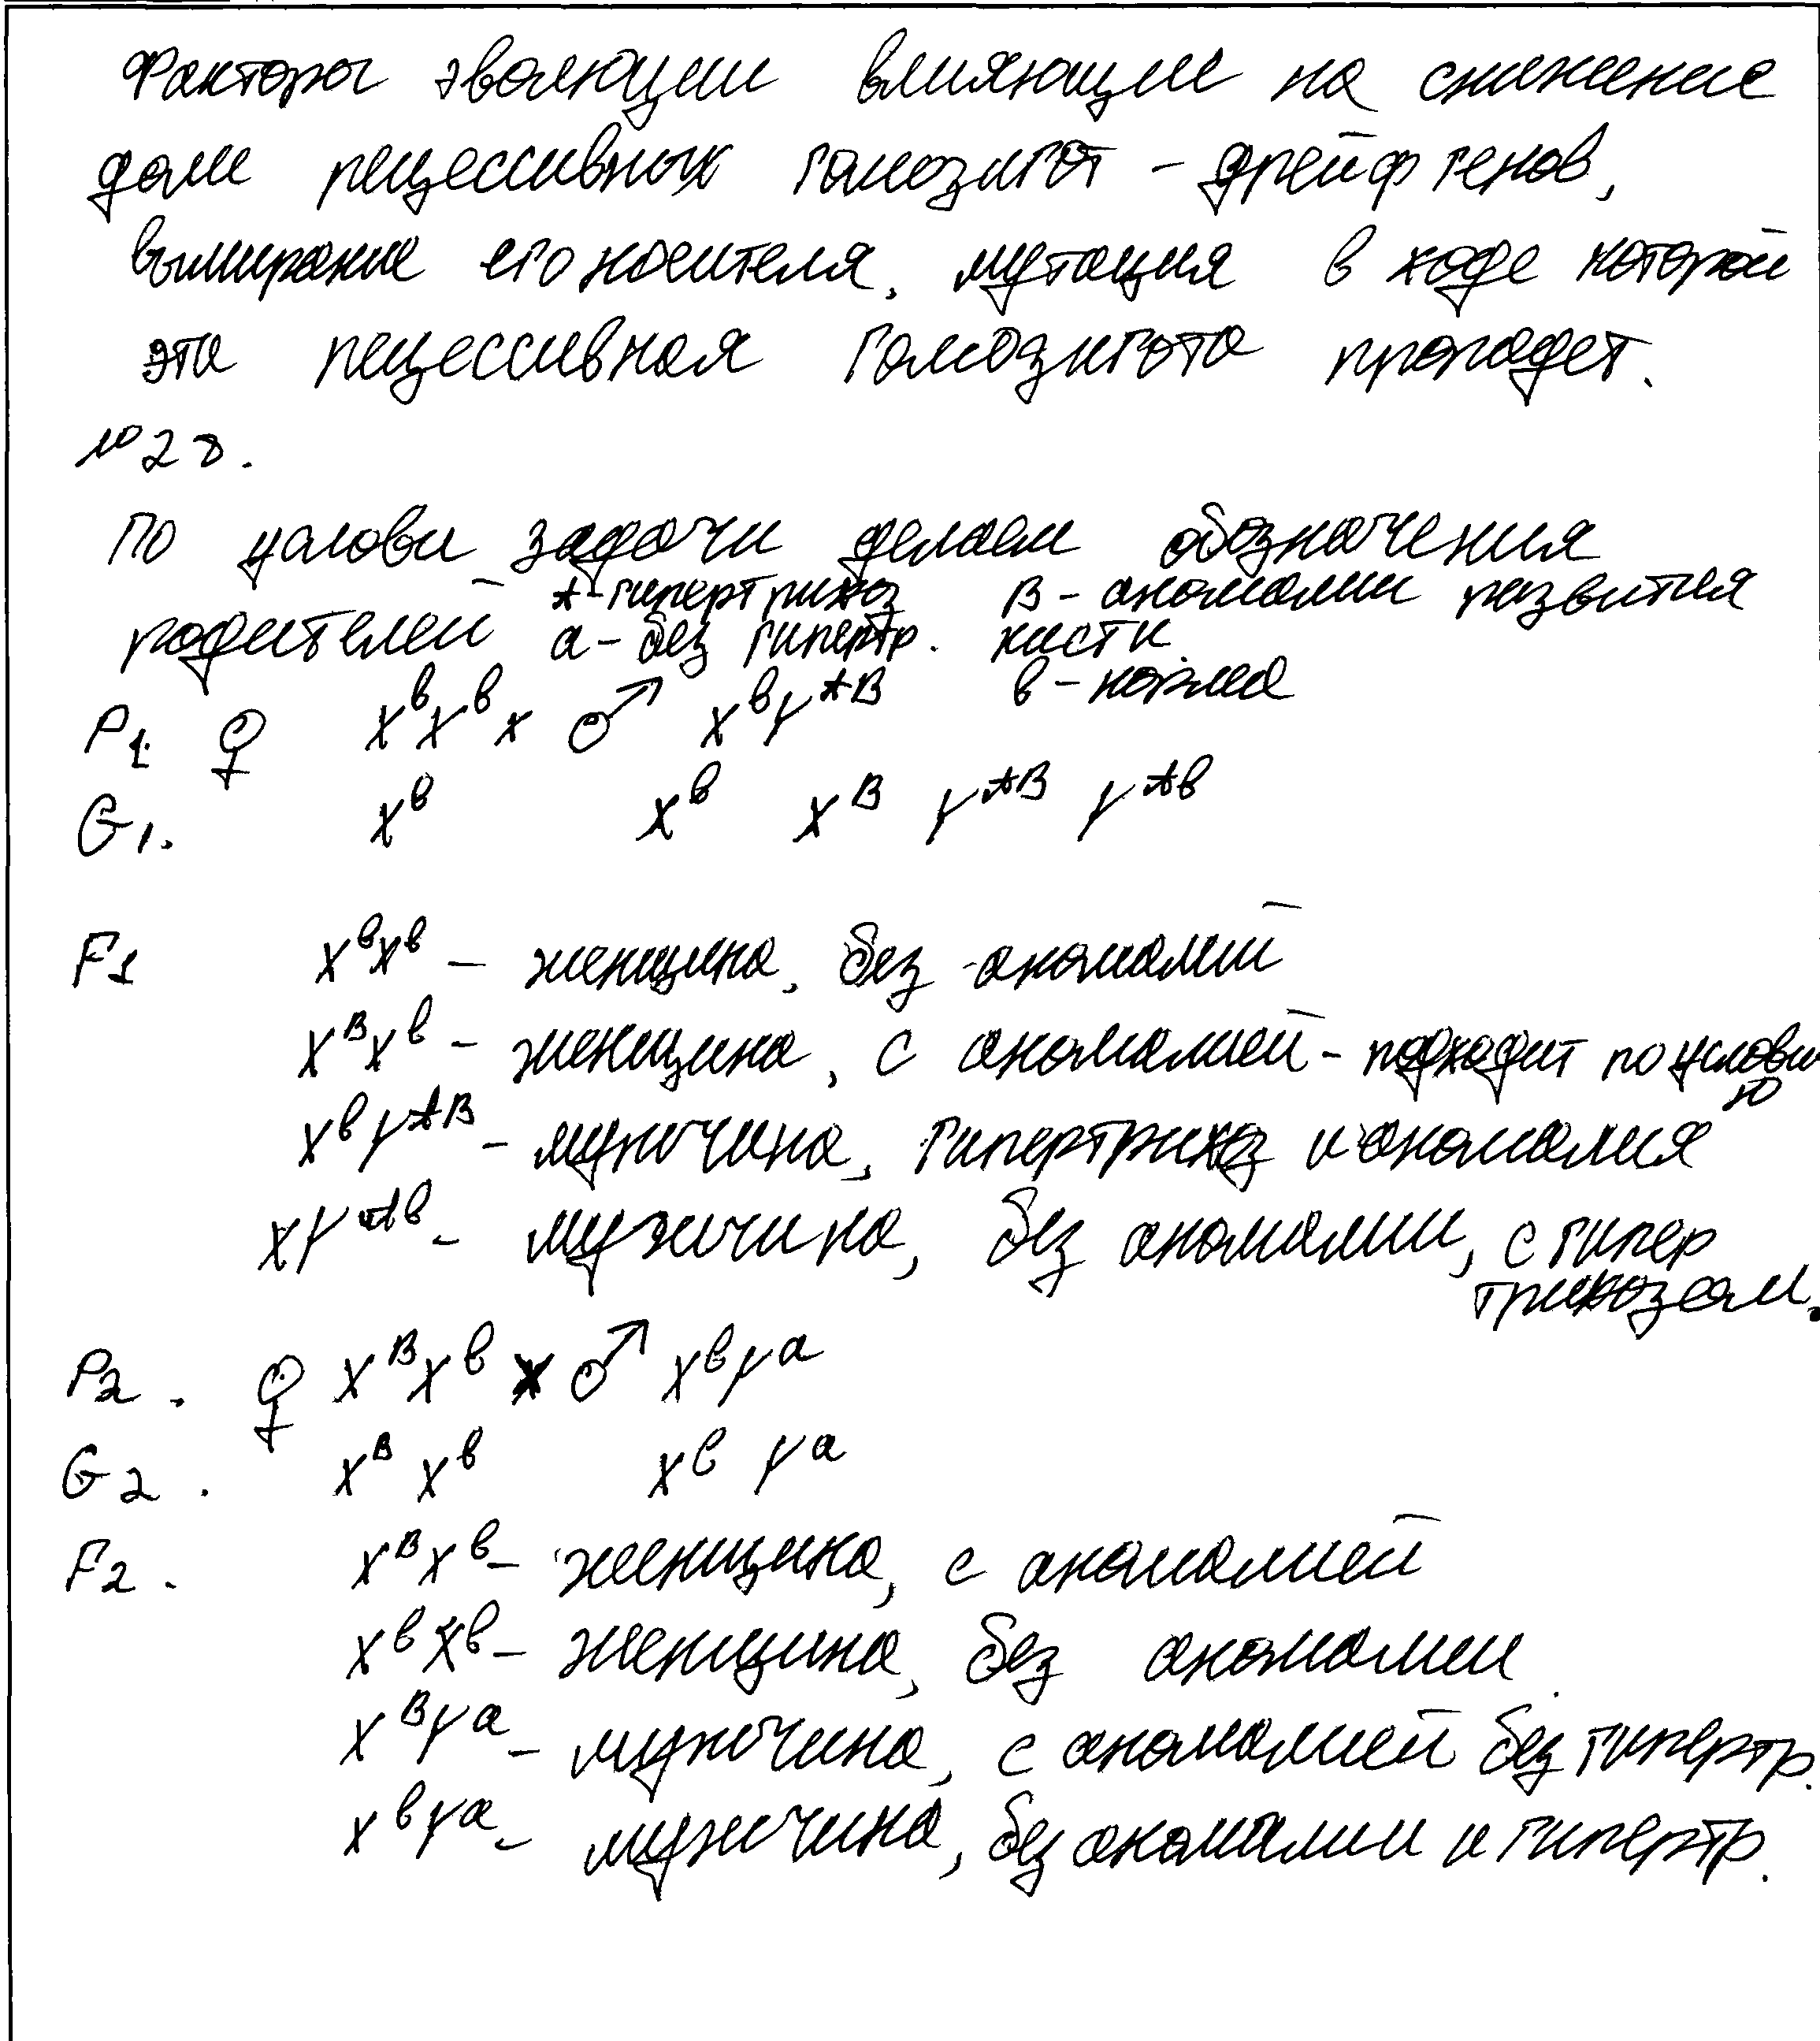 Факторы эволюции влияющие на снижение
доли рецессивных гомозигот - дрейф генов,
вымирание его носителя, мутация в ходе которой
эта рецессивная гомозигота пропадет.
№ 28.
По услови задачи делаем обозначения
родителей A-гипертрихоз B - аномалии развития
a - без гипертр. кисти
в - норма
P1. ♀ XᵇXᵇ x ♂ XᵇYᴬᴮ
G1. Xᵇ Xᵇ Xᴮ Yᴬᴮ Yᴬᵇ
F1 XᵇXᵇ - женщина, без аномалий
XᴮXᵇ - женщина, с аномалией - подходит по услови
ю
XᵇYᴬᴮ - мужчина, гипертрихоз и аномалия
XYᴬᵇ - мужчина, без аномалии, с гипер
трихозом.
P2. ♀ XᴮXᵇ x ♂ XᵇYᵃ
G2. Xᴮ Xᵇ Xᵇ Yᵃ
F2. XᴮXᵇ - женщина, с аномалией
XᵇXᵇ - женщина, без аномалии.
XᴮYᵃ - мужчина, с аномалией без гипертр.
XᵇYᵃ - мужчина, без аномалии и гипертр.